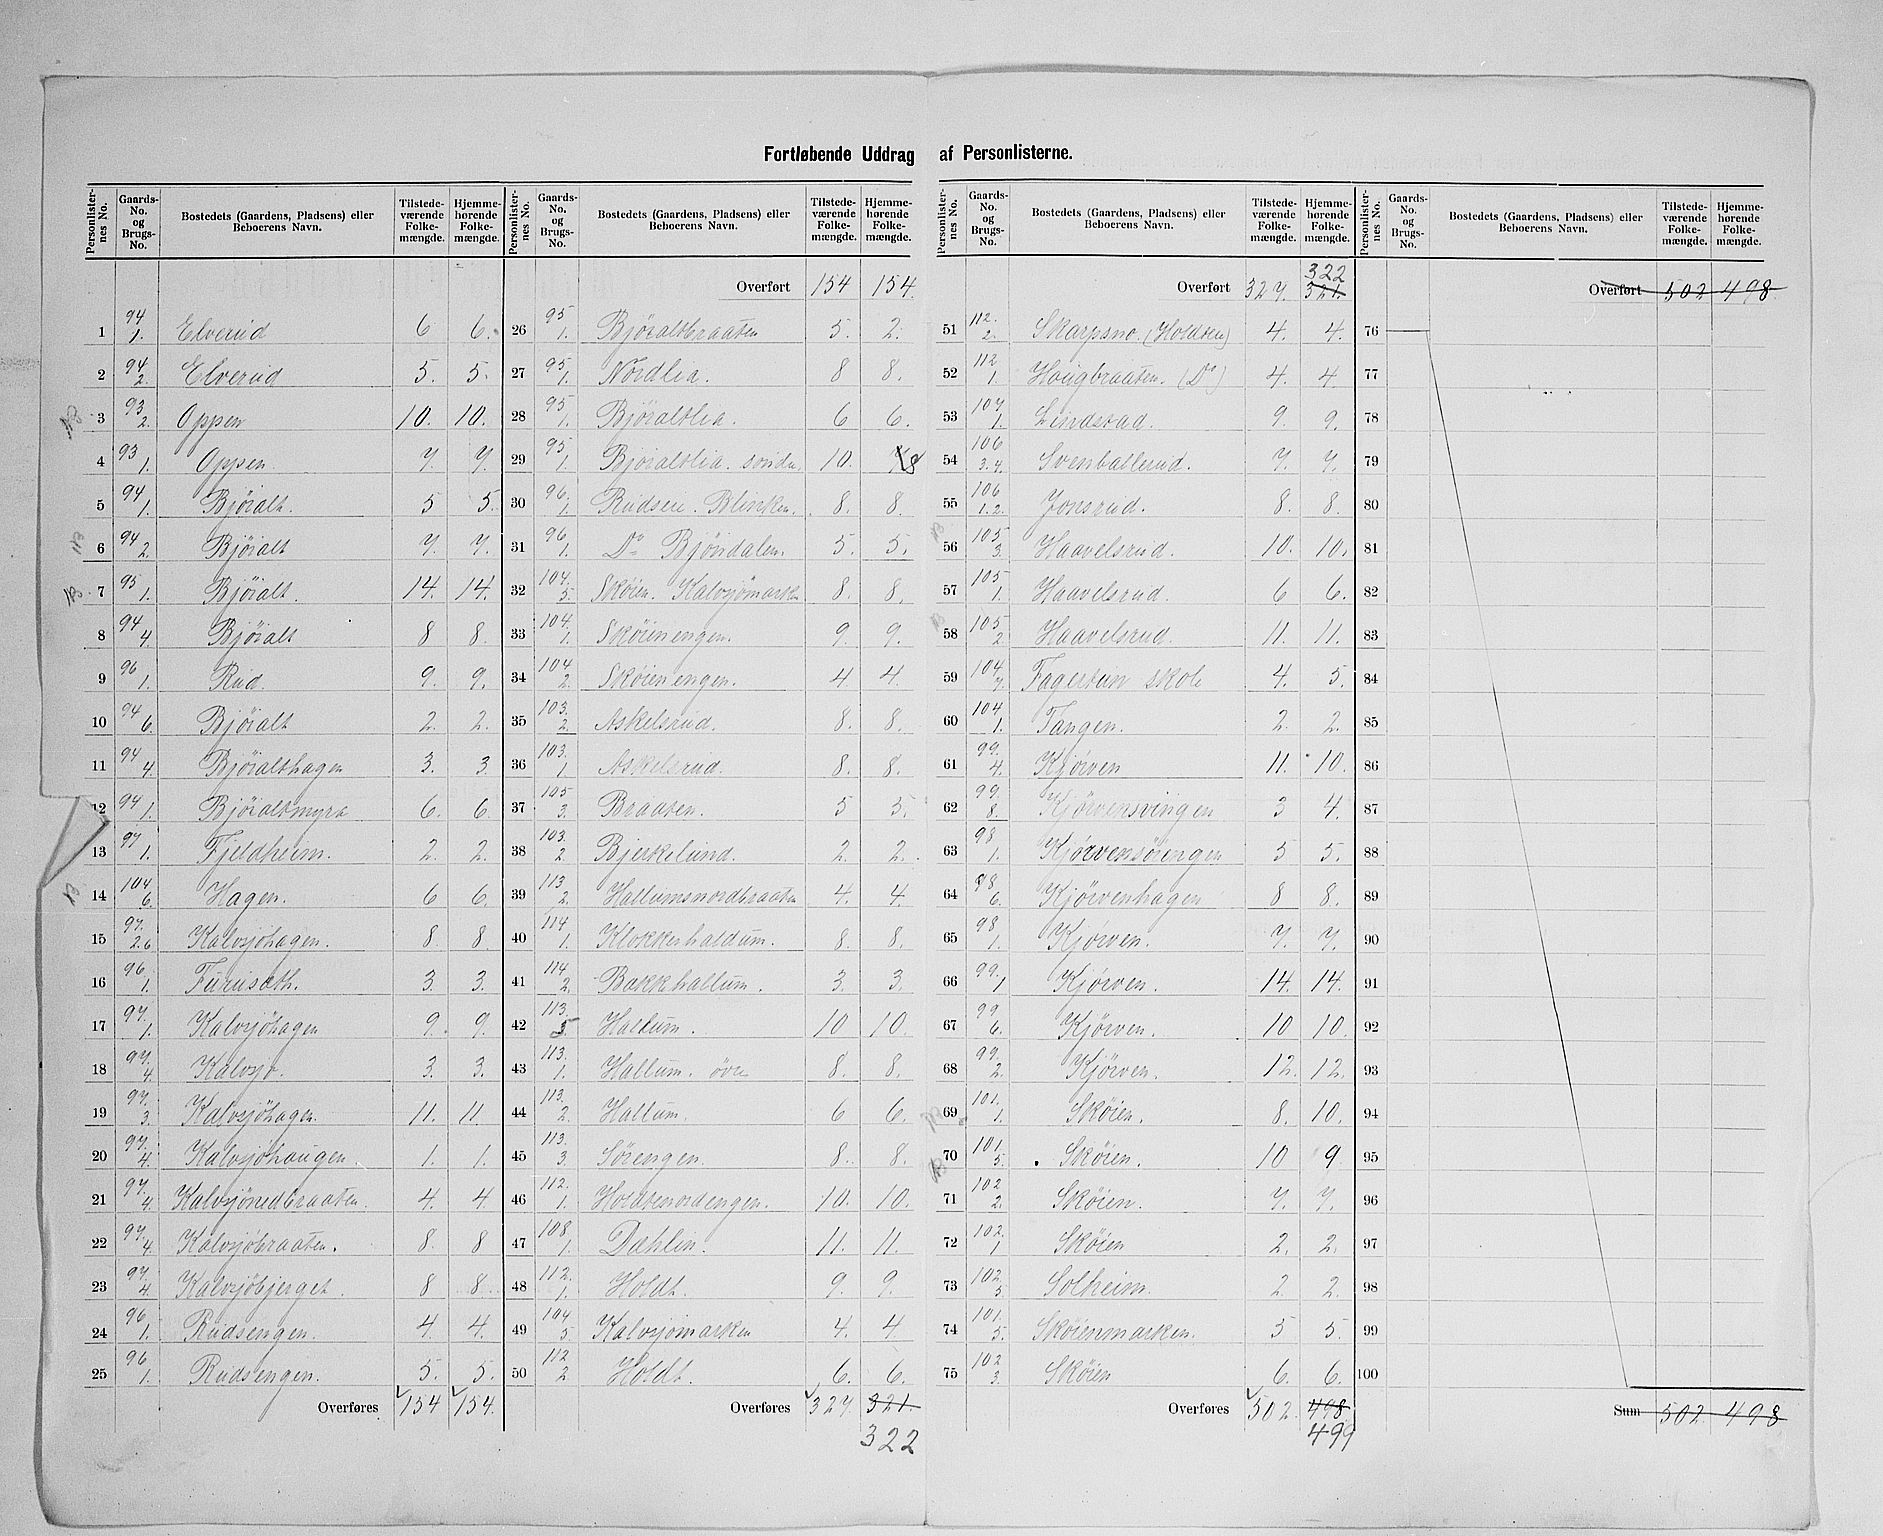 Fortløbende Uddrag af Personlisterne.
Personlisternes No. | Gaards-No. og Brugs-No. | Bostedets (Gaardens, Pladsens) eller Beboerens Navn. | Tilstedeværende Folkemængde. | Hjemmehørende Folkemængde.
1 94/1. Elverud 6 6.
2 94/2. Elverud 5. 5.
3 93/2. Oppen 10. 10.
4 93/1. Oppen 7. 7.
5 94/1. Björalt. 5 5.
6 94/2. Björalt 7. 7.
7 95/1. Björalt. 14. 14.
8 94/4. Björalt 8 8.
9 96/1. Rud. 9. 9.
10 94/6. Björalt 2. 2.
11 94/4. Björalthagen 3. 3.
12 94/1. Björaltmyra 6. 6.
13 97/1. Fjeldheim. 2. 2.
14 104/6. Hagen. 6 6.
15 97./2.6 Kalvsjöhagen. 8. 8.
16 96./1. Furuseth. 3. 3.
17 97./1. Kalvsjöhagen 9. 9.
18 97./4. Kalvsjö. 3. 3.
19 97./3. Kalvsjöhagen. 11. 11.
20 97./4. Kalvsjöhaugen 1. 1.
21 97./4. Kalvsjönedbraaten. 4. 4.
22 97./4. Kalvsjöbraaten. 8. 8
23 97./4. Kalvsjöbjerget. 8 8.
24 96./1. Rudsengen. 4. 4.
25 96/1. Rudsengen. 5. 5.
Overføres 154 154.
Overført 154 154.
26 95/1. Björaltbraaten 5. 2.
27 95./1. Nordlia. 8 8.
28 95/1. Björaltlia. 6 6.
29 95/1. Björaltlia. söndre 10. 8
30 96./1. Rudsen. Blinken. 8. 8.
31 96./1. Do Bjöndalen. 5. 5.
32 104./5. Sköien. Kalvsjömarken 8. 8.
33 104./1. Sköienengen. 9. 9.
34 104/2. Sköienengen. 4 4.
35 103./2. Askelsrud. 8. 8.
36 103./1. Askelsrud. 8. 8.
37 105/3. Braaten. 5 5.
38 103./2 Bjerkelund. 2. 2.
39 113/2. Hallumsnordbraaten 4. 4.
40 114./1. Klokkerhallum. 8. 8.
41 114/2. Bakkhallum. 3. 3.
42 113./5 Hallum. 10 10.
43 113./1. Hallum. övre 8. 8.
44 113./2. Hallum. 6 6.
45 113./3. Sörengen. 8. 8.
46 112./1. Holdtnordengen. 10. 10.
47 108./1. Dahlen. 11. 11.
48 112./1. Holdt. 9 9.
49 104/5 Kalvsjömarken 4. 4
50 112/2 Holdt. 6. 6.
Overføres 327. 321.
322
322
Overført 327. 321.
51 112./2. Skarpsno. (Holdten) 4. 4.
52 112/1. Hougbraaten. (Do) 4. 4.
53 107/1. Lindstad. 9. 9.
54 106/3.4. Svenballerud. 7. 7.
55 106/1.2. Jonsrud. 8. 8.
56 105/3. Haavelsrud. 10. 10.
57 105/1. Haavelsrud. 6 6.
58 105/2. Haavelsrud. 11. 11.
59 104./7. Fagertun skole 4. 5.
60 104/1. Tangen. 2. 2.
61 99./4. Kjörven 11. 10.
62 99./8. Kjörvensvingen 3 4.
63 98/1. Kjörvensöiengen 5 5.
64 98/6. Kjörvenhagen 8 8.
65 98/1. Kjörven. 7. 7.
66 99./1 Kjörven. 14. 14.
67 99/6. Kjörven. 10 10.
68 99./2. Kjörven. 12. 12.
69 101./1. Sköien. 8. 10.
70 101./5. Sköien. 10 9
71 102/2. Sköien. 7. 7.
72 102./1 Sköien 2. 2.
73 102./5 Solheim. 2. 2.
74 101./5. Sköienmarken. 5 5.
75 102/3. Sköien 6. 6.
Overføres 502. 498.
499
Overført 502 498
76
77
78
79
80
81
82
83
84
85
86
87
88
89
90
91
92
93
94
95
96
97
98
99
100
Sum 502 498